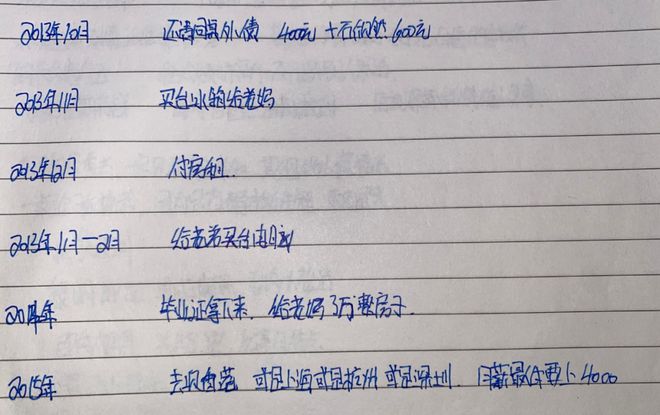 2013年10月 还清同学外债 400元 + 石 600元
2013年11月 买台冰箱给老妈
2013年12月 付房租.
2013年11月一2月 给老弟买台电脑
2014年 毕业证拿下来、给老妈3万整房子.
2015年 去 或是上海或是杭州 或是深圳. 月薪最低要上4000